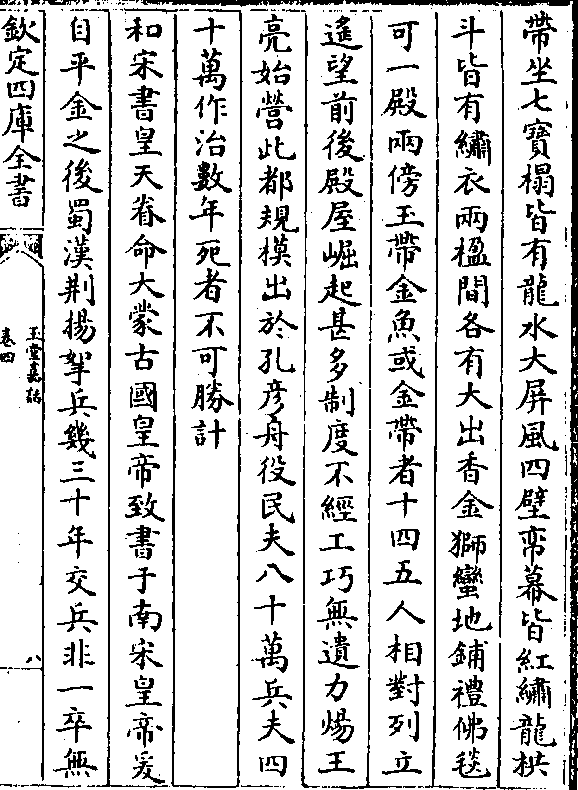 帶坐七寳榻皆有龍水大屏風四壁帟幕皆紅繡龍栱
斗皆有繡衣兩楹間各有大出香金獅蠻地鋪禮佛毯
可一殿兩傍玉帶金魚或金帶者十四五人相對列立
遙望前後殿屋崛起甚多制度不經工巧無遺力煬王
亮始營此都規模出於孔彦舟役民夫八十萬兵夫四
十萬作治數年死者不可勝計
和宋書皇天眷命大蒙古國皇帝致書于南宋皇帝爰
自平金之後蜀漢荆揚挐兵幾三十年交兵非一卒無
欽定四庫全書
玉堂嘉話
卷四
八